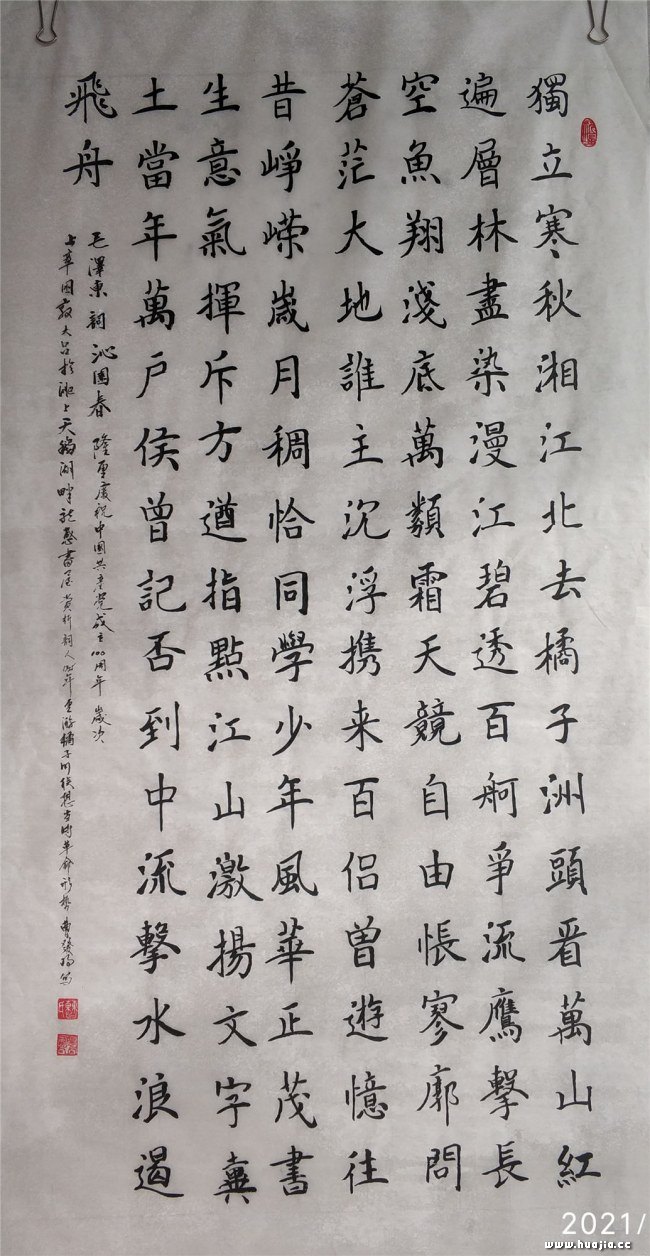 獨立寒秋湘江北去橘子洲頭看萬山紅
遍層林盡染漫江碧透百舸爭流鷹擊長
空魚翔淺底萬類霜天競自由悵寥廓問
蒼茫大地誰主沉浮携来百侣曾遊憶往
昔崢嶸歲月稠恰同學少年風華正茂書
生意氣揮斥方遒指點江山激揚文字糞
土當年萬户侯曾記否到中流擊水浪遏
飛舟
毛澤東詞沁園春 隆重慶祝中國共產黨成立100周年 歲次
上章困敦大吕於湘上天鵝湖畔 書屋賞析詞人 年重游橘子洲聯想當時革命形勢
2021/
www.huajia.cc